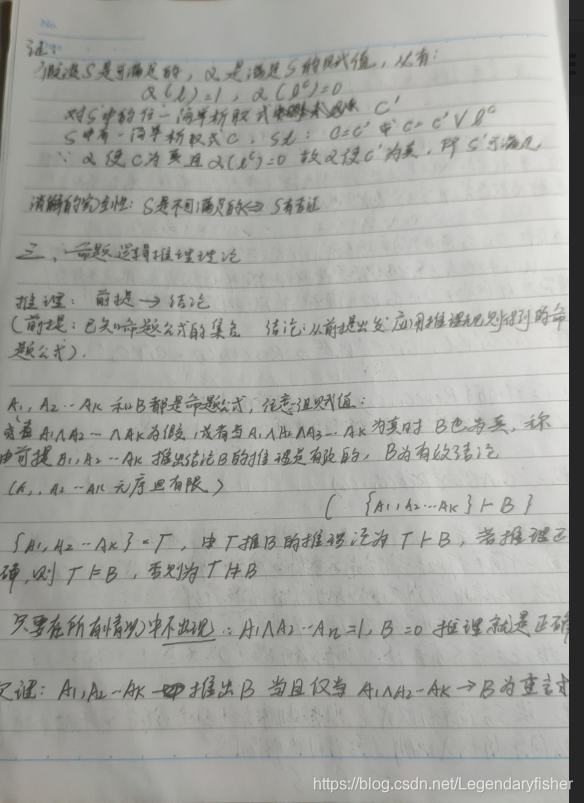 No.
证:
假设S是可满足的, α是满足S的赋值, 从有:
α(l)=1, α(lᶜ)=0
对S'中的任一简单析取式 C'
S中有一简单析取式C, s.t: C=C' 或 C=C'∨lᶜ
∵ α使C为真且α(lᶜ)=0 故α使C'为真, 即S'可满足
消解的完全性: S是不可满足的⇔S有否证
三、命题逻辑推理理论
推理: 前提→结论
(前提: 已知命题公式的集合 结论: 从前提出发应用推理规则得到的命
题公式).
A₁, A₂…Aₖ 和B都是命题公式, 任意组赋值:
或者A₁∧A₂…∧Aₖ为假, 或者当A₁∧A₂∧A₃…Aₖ为真时 B也为真, 称
由前提A₁, A₂…Aₖ 推出结论B的推理是有效的, B为有效结论
(A₁, A₂…Aₖ 无序且有限)
( {A₁, A₂…Aₖ}⊢B}
{A₁, A₂…Aₖ}=T, 由T推B的推理记为T⊢B, 若推理正
确, 则T⊨B, 否则为T⊭B
只要在所有情况中不出现: A₁∧A₂…Aₙ=1, B=0 推理就是正确
定理: A₁, A₂…Aₖ 推出B 当且仅当 A₁∧A₂…Aₖ→B为重言式
https://blog.csdn.net/Legendaryfisher